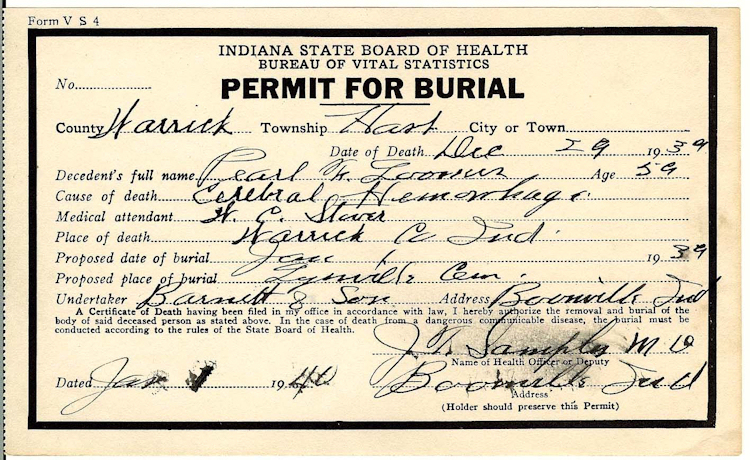 Form V S 4
INDIANA STATE BOARD OF HEALTH
BUREAU OF VITAL STATISTICS
No.
PERMIT FOR BURIAL
County Warrick Township Hart City or Town
Date of Death Dec 29 1939
Decedent's full name Pearl Age 59
Cause of death Cerebral Hemorhage
Medical attendant W. C. Stover
Place of death Warrick Co Ind.
Proposed date of burial Jan 1 1939
Proposed place of burial Lynville Cem.
Undertaker Barnett & Son Address Boonville Ind
A Certificate of Death having been filed in my office in accordance with law, I hereby authorize the removal and burial of the
body of said deceased person as stated above. In the case of death from a dangerous communicable disease, the burial must be
conducted according to the rules of the State Board of Health.
M D
Name of Health Officer or Deputy
Dated Jan 1940 Boonville Ind
Address
(Holder should preserve this Permit)